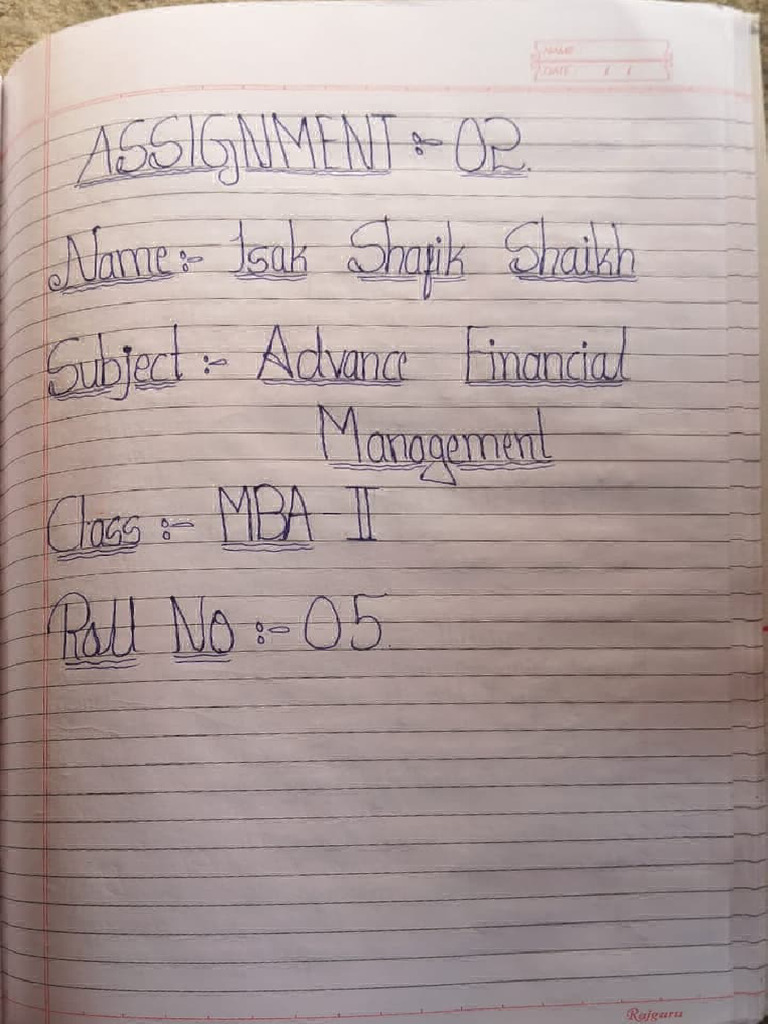 NAME
DATE / /
ASSIGNMENT :- 02.
Name :- Isak Shafik Shaikh
Subject :- Advance Financial
Management
Class :- MBA II
Roll No :- 05.
Rajguru